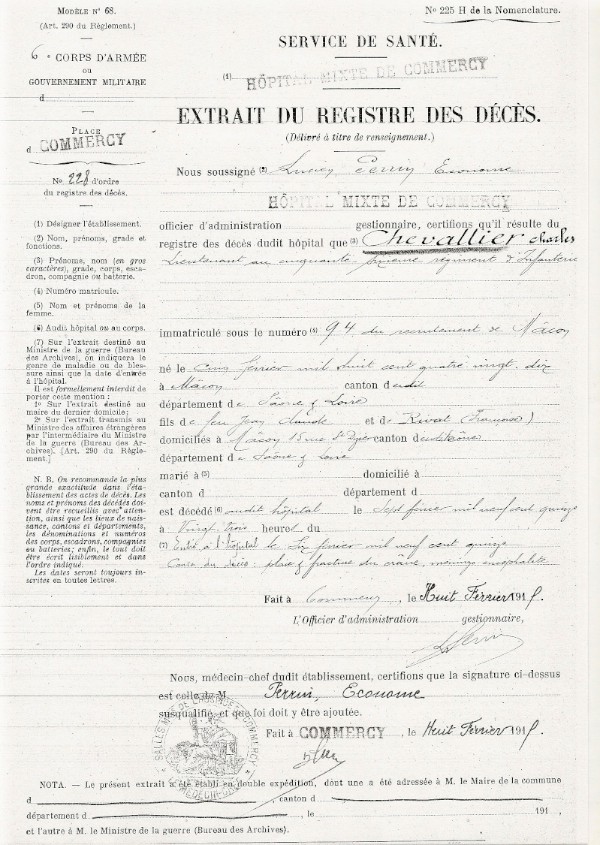 MODÈLE N° 68.
(Art. 290 du Règlement.)
N° 225 H de la Nomenclature.
6e CORPS D'ARMÉE
OU
GOUVERNEMENT MILITAIRE
d
PLACE
d COMMERCY
N° 228 d'ordre
du registre des décès.
(1) Désigner l'établissement.
(2) Nom, prénoms, grade et
fonctions.
(3) Prénoms, nom (en gros
caractères), grade, corps, esca-
dron, compagnie ou batterie.
(4) Numéro matricule.
(5) Nom et prénoms de la
femme.
(6) Audit hôpital ou au corps.
(7) Sur l'extrait destiné au
Ministre de la guerre (Bureau
des Archives), on indiquera le
genre de maladie ou de bles-
sure ainsi que la date d'entrée
à l'hôpital.
Il est formellement interdit de
porter cette mention :
1° Sur l'extrait destiné au
maire du dernier domicile ;
2° Sur l'extrait transmis au
Ministre des affaires étrangères
par l'intermédiaire du Ministre
de la guerre (Bureau des Ar-
chives). [Art. 290 du Règle-
ment.]
N. B. On recommande la plus
grande exactitude dans l'éta-
blissement des actes de décès. Les
noms et prénoms des décédés doi-
vent être recueillis avec atten-
tion, ainsi que les lieux de nais-
sance, cantons et départements,
les dénominations et numéros
des corps, escadrons, compagnies
ou batteries ; enfin, le tout doit
être écrit lisiblement et dans
l'ordre indiqué.
Les dates seront toujours ins-
crites en toutes lettres.
SERVICE DE SANTÉ.
(1) HÔPITAL MIXTE DE COMMERCY
EXTRAIT DU REGISTRE DES DÉCÈS.
(Délivré à titre de renseignement.)
Nous soussigné (2) Perrin Econome
HÔPITAL MIXTE DE COMMERCY
officier d'administration gestionnaire, certifions qu'il résulte du
registre des décès dudit hôpital que (3) Chevallier Charles
Lieutenant au cinquante régiment d'Infanterie
immatriculé sous le numéro (4) 94 du recrutement de Mâcon
né le cinq février mil huit cent quatre vingt dix
à Mâcon canton dudit
département de Saône & Loire
fils de feu Jean Claude et de Rivat (Françoise)
domiciliés à Mâcon 15 rue St canton dudit
département de Saône & Loire
marié à (5) domicilié à
canton d département d
est décédé (6) audit hôpital le Sept février mil neuf cent quinze
à Vingt trois heures du
(7) Entré à l'hôpital le Six février mil neuf cent quinze
Cause du décès : plaie & fracture du crâne, méningo encéphalite
Fait à Commercy, le Huit Février 1915.
L'Officier d'administration gestionnaire,
Perrin
Nous, médecin-chef dudit établissement, certifions que la signature ci-dessus
est celle de M. Perrin, Econome
susqualifié, et que foi doit y être ajoutée.
Fait à COMMERCY, le Huit Février 1915.
NOTA. — Le présent extrait a été établi en double expédition, dont une a été adressée à M. le Maire de la commune
d , canton d
département d , le 191 ,
et l'autre à M. le Ministre de la guerre (Bureau des Archives).